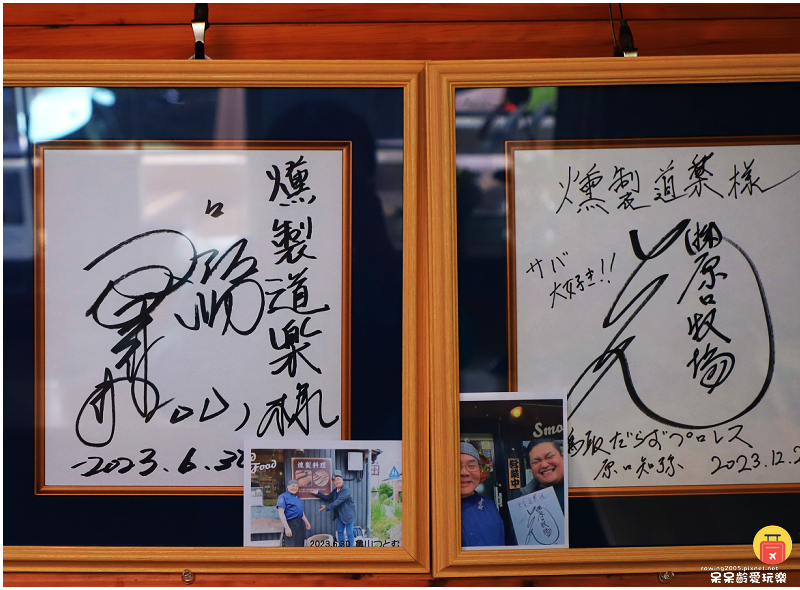 燻製道楽様
2023.6.30
FOOD
燻製料理
2023.6.30 亀山つとむ
燻製道楽様
サバ
大好き!!
㈱原口牧場
鳥取だらずプロレス
原口知弥 2023.12.2
Smo
営業中
rowing2005.pixnet.net
呆呆齡愛玩樂